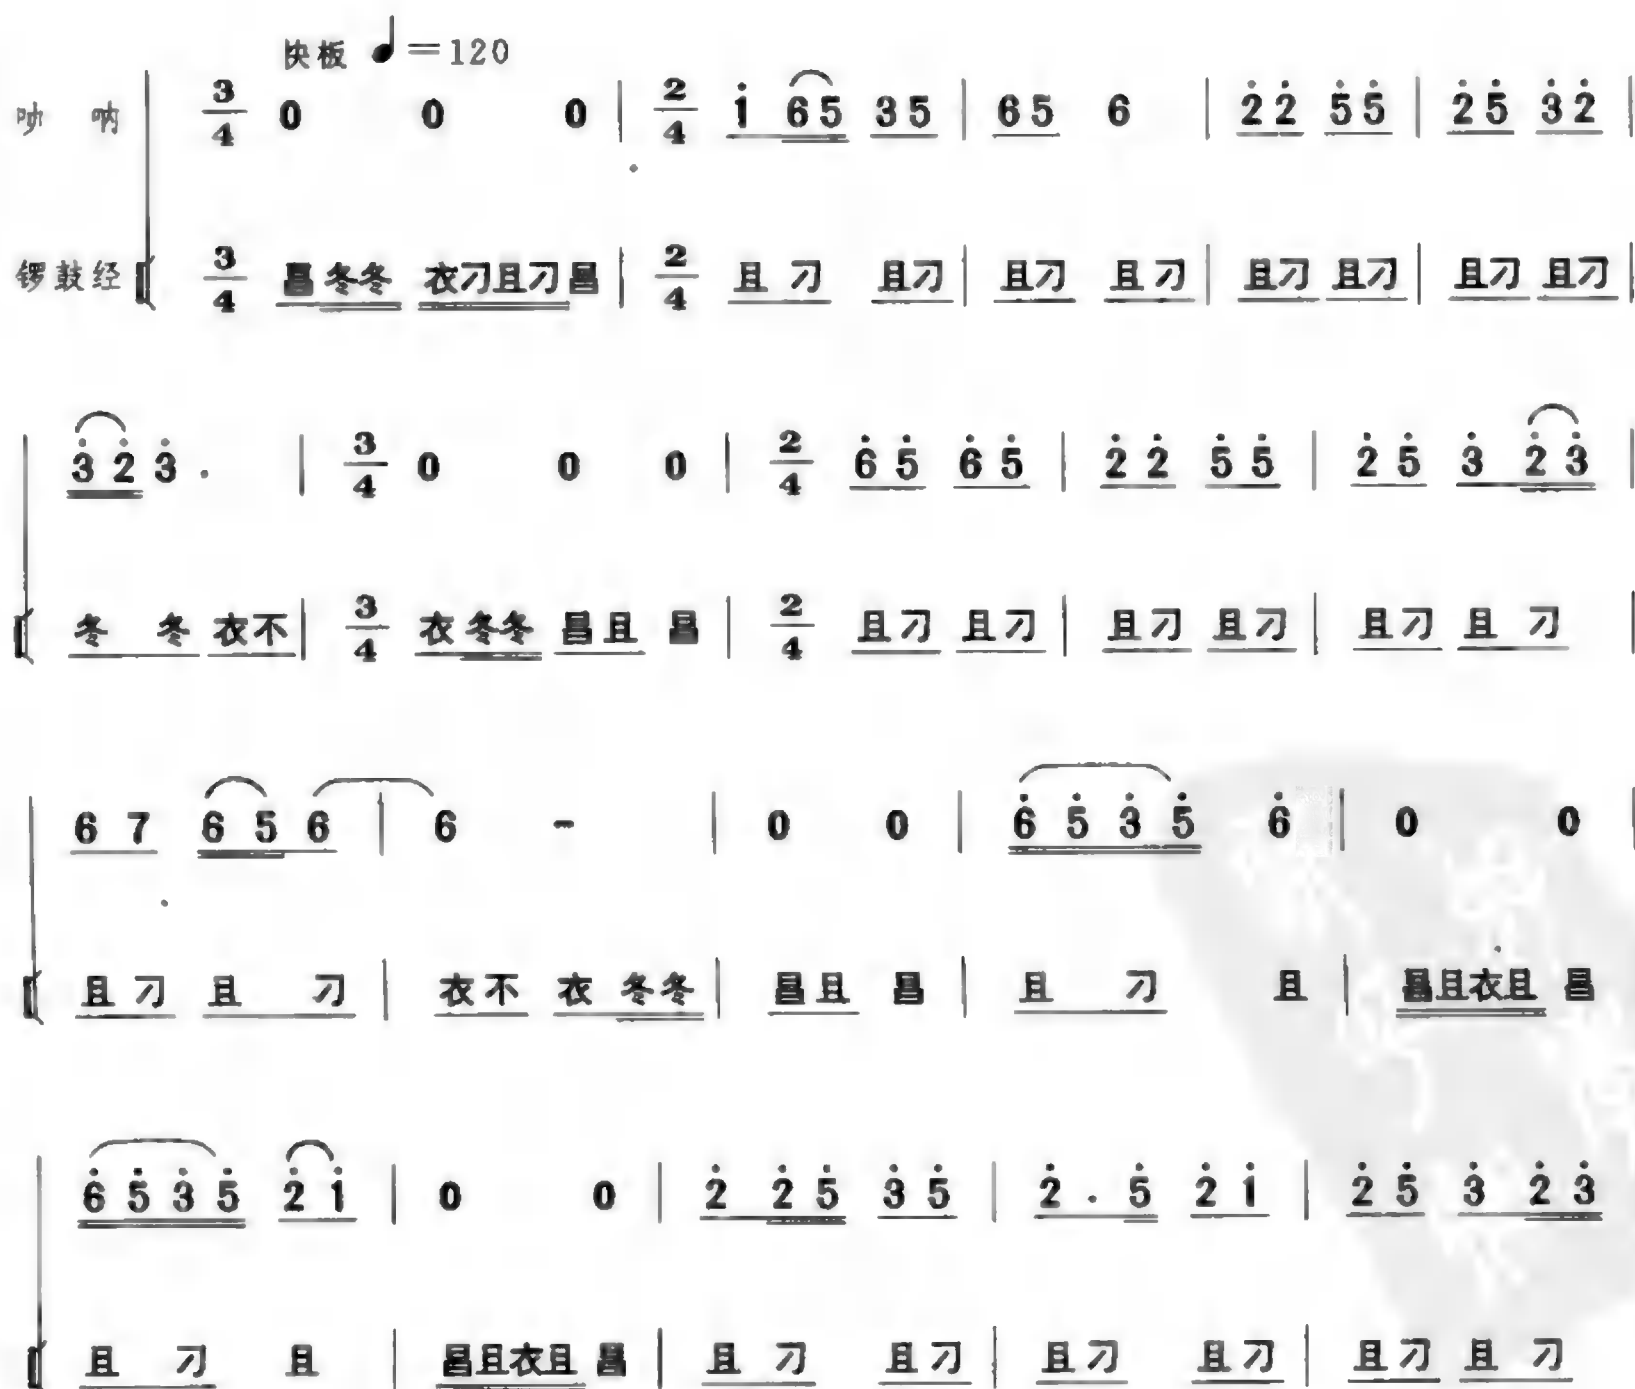 快板 ♩=120
唢 呐 3/4 0 0 0 | 2/4 i̇ 6 5 3 5 | 6 5 6 | 2̇ 2̇ 5̇ 5̇ | 2̇ 5̇ 3̇ 2̇ |
锣鼓经 3/4 昌 冬冬 衣刁且刁 昌 | 2/4 且 刁 且刁 | 且刁 且刁 | 且刁 且刁 | 且刁 且刁 |
3̇ 2̇ 3̇ . | 3/4 0 0 0 | 2/4 6̇ 5̇ 6̇ 5̇ | 2̇ 2̇ 5̇ 5̇ | 2̇ 5̇ 3̇ 2̇ 3̇ |
冬 冬 衣不 | 3/4 衣 冬冬 昌且 昌 | 2/4 且刁 且刁 | 且刁 且刁 | 且刁 且 刁 |
6 7 6 5 6 | 6 - | 0 0 | 6̇ 5̇ 3̇ 5̇ 6̇ | 0 0 |
且刁 且 刁 | 衣不 衣 冬冬 | 昌且 昌 | 且 刁 且 | 昌且衣且 昌
6̇ 5̇ 3̇ 5̇ 2̇ i̇ | 0 0 | 2̇ 2̇ 5̇ 3̇ 5̇ | 2̇ . 5̇ 2̇ i̇ | 2̇ 5̇ 3̇ 2̇ 3̇
且 刁 且 | 昌且衣且 昌 | 且 刁 且刁 | 且刁 且刁 | 且刁 且 刁